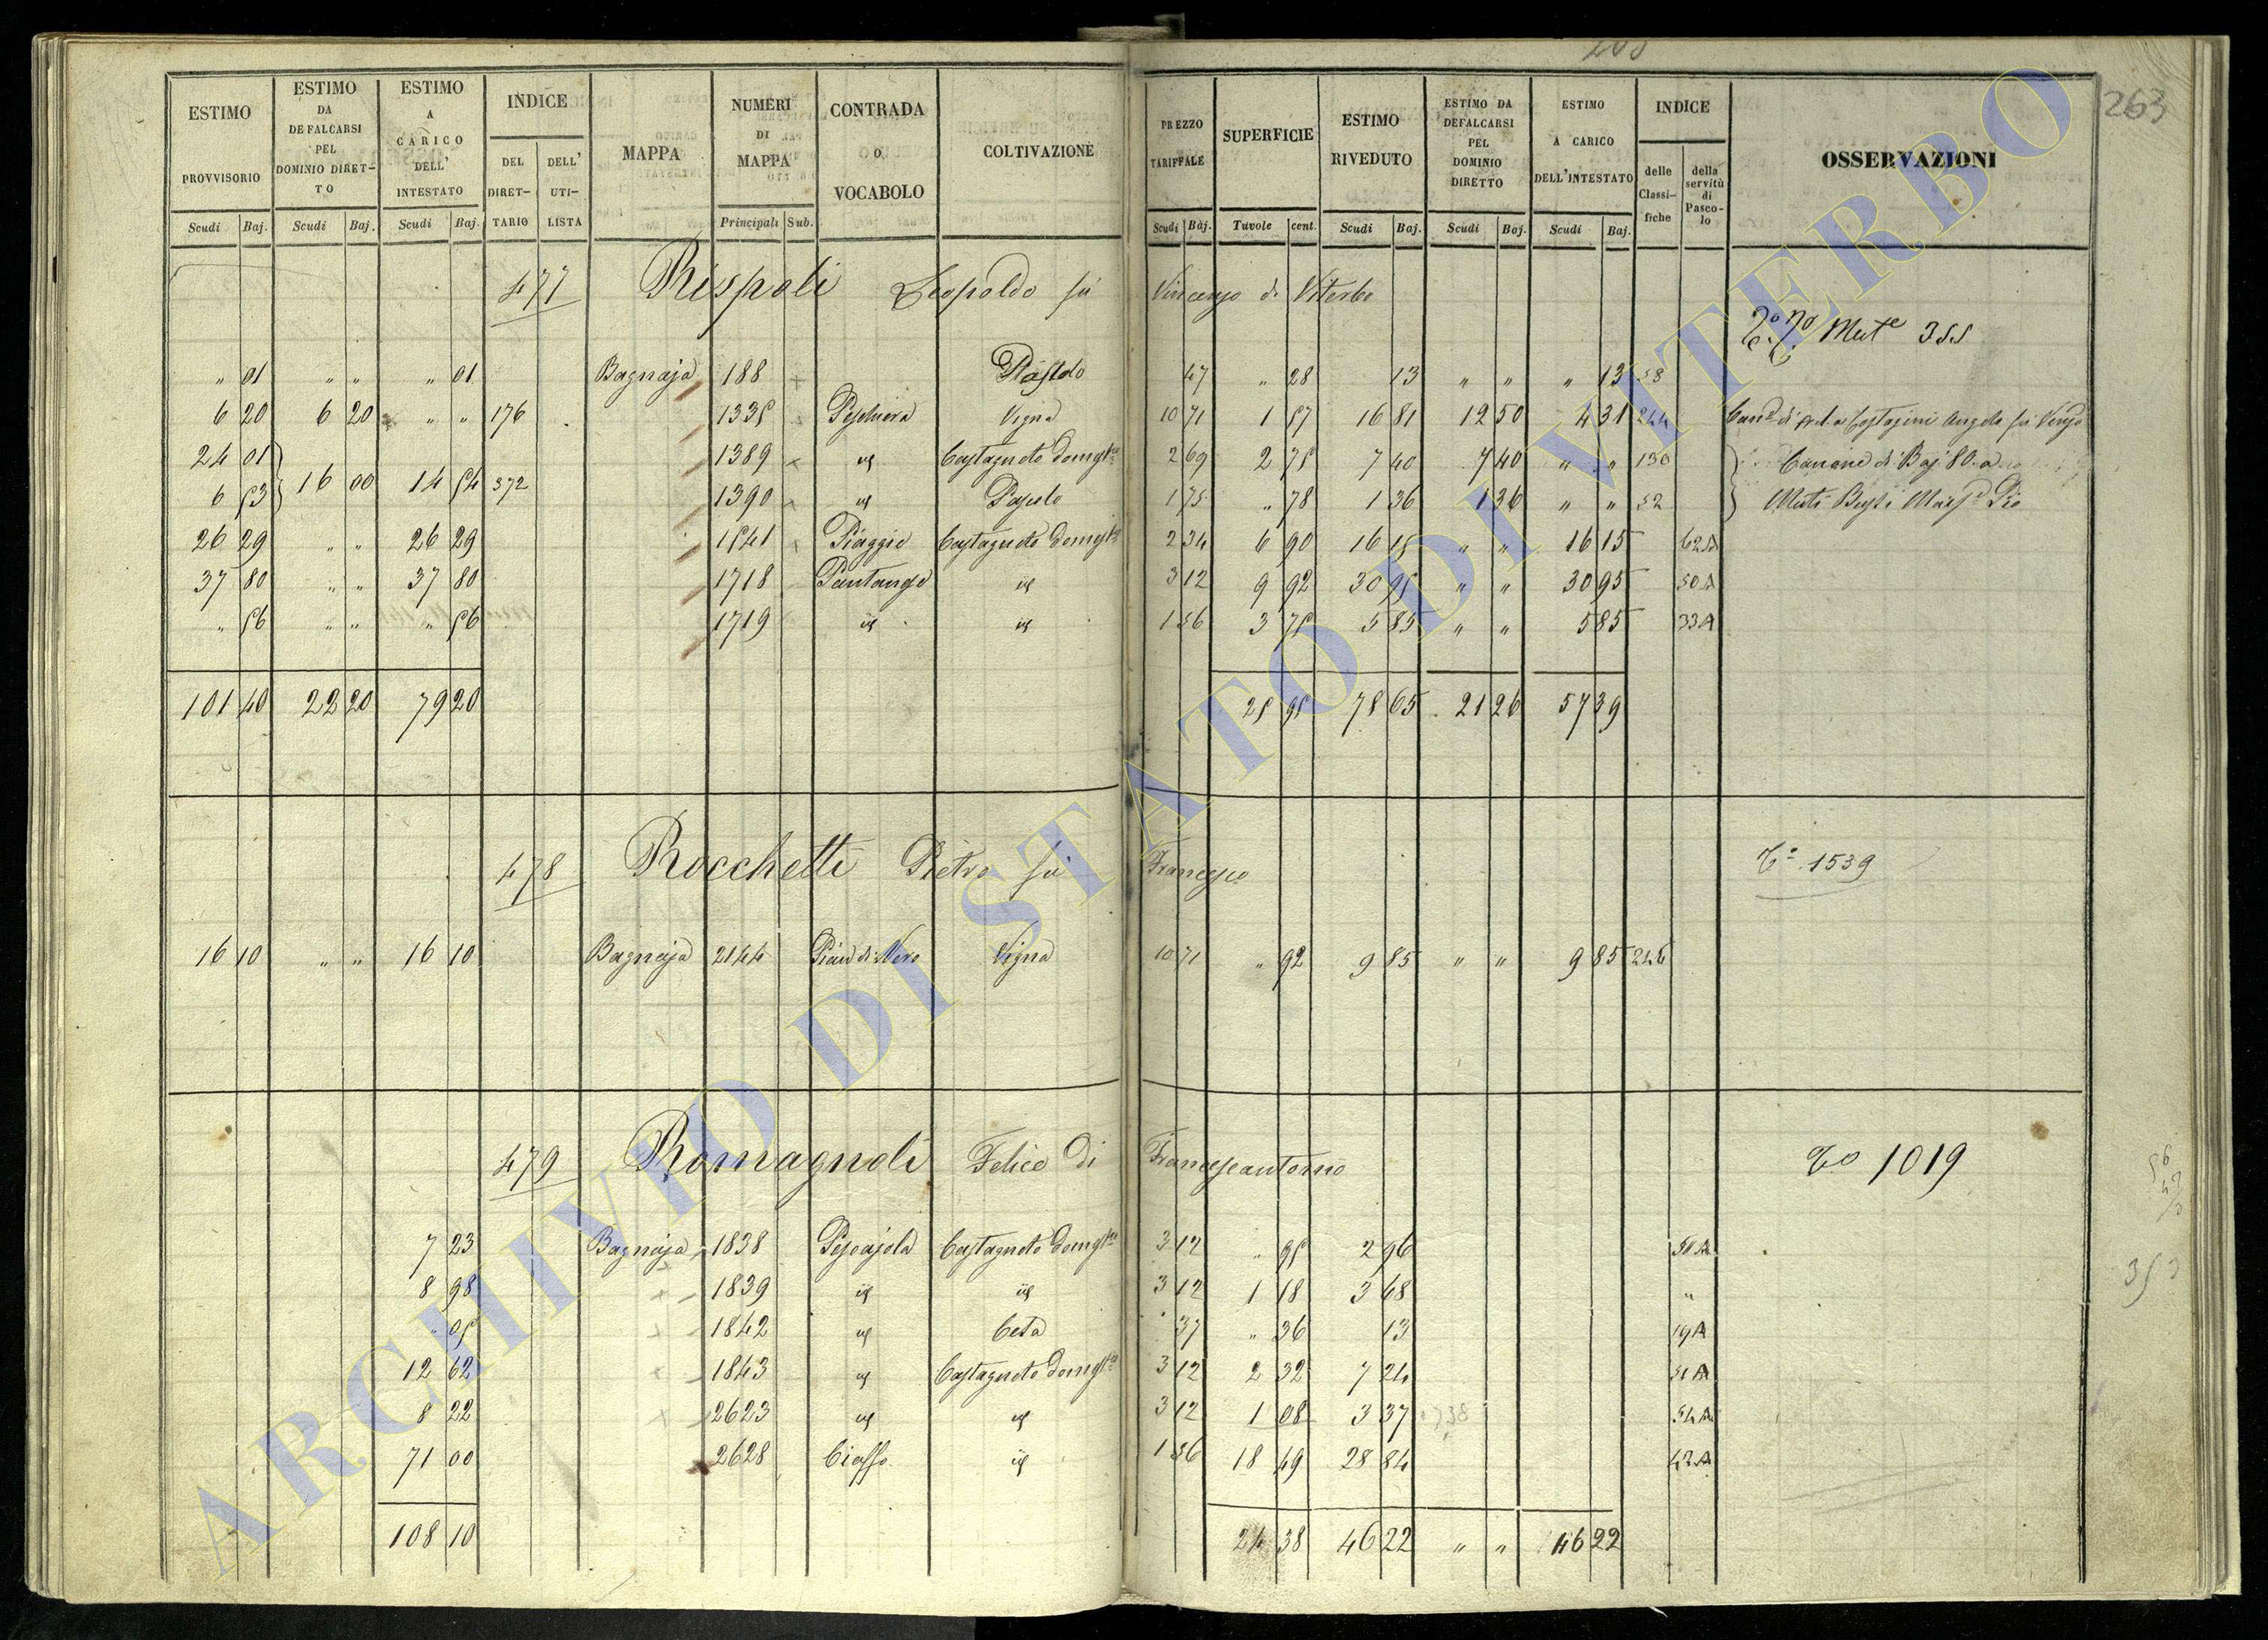 263
ESTIMO PROVVISORIO Scudi Baj. ESTIMO DA DEFALCARSI PEL DOMINIO DIRETTO Scudi Baj. ESTIMO A CARICO DELL' INTESTATO Scudi Baj. INDICE DEL DIRETTARIO DELL' UTILISTA MAPPA NUMERI DI MAPPA Principali Sub. CONTRADA O VOCABOLO COLTIVAZIONE PREZZO TARIFFALE Scudi Baj. SUPERFICIE Tavole cent. ESTIMO RIVEDUTO Scudi Baj. ESTIMO DA DEFALCARSI PEL DOMINIO DIRETTO Scudi Baj. ESTIMO A CARICO DELL'INTESTATO Scudi Baj. INDICE delle Classifiche della servitù di Pascolo OSSERVAZIONI
477 Rispoli Leopoldo fu Vincenzo di Viterbo
Mut.e 355
" 01 " " " 01 Bagnaja 188 47 " 28 13 " " " 13 58
6 20 6 20 " " 176 1335 Peschiera Vigna 10 71 1 57 16 81 12 50 4 31 244
24 01 1389 id Castagneto domest.co 2 69 2 75 7 40 7 40 " " 130 Canone di Baj 80. a
6 53 16 00 14 54 372 1390 id Pascolo 1 75 " 78 1 36 1 36 " " 52 Pio
26 29 " " 26 29 1541 Piaggie Castagneto domest.co 2 34 6 90 16 15 " " 16 15 62A
37 80 " " 37 80 1718 Pantange id 3 12 9 92 30 95 " " 30 95 50A
" 56 " " " 56 1719 id id 1 56 3 75 5 85 " " 5 85 33A
101 40 22 20 79 20 25 95 78 65 21 26 57 39
478 Rocchetti Pietro fu Francesco
1539
16 10 " " 16 10 Bagnaja 2144 Pian di Nero Vigna 10 71 " 92 9 85 " " 9 85 246
479 Romagnoli Felice di Francescantonio
1019
7 23 Bagnaja 1838 Pescajola Castagneto domest.co 3 12 " 95 2 96
8 98 1839 id id 3 12 1 18 3 68 "
" 05 1842 id Ceta 37 " 36 13 19A
12 62 1843 id Castagneto domest.co 3 12 2 32 7 24
8 22 2623 id id 3 12 1 08 3 37
71 00 2628 id 1 56 18 49 28 84 42A
108 10 24 38 46 22 " " 46 22
353
ARCHIVIO DI STATO DI VITERBO